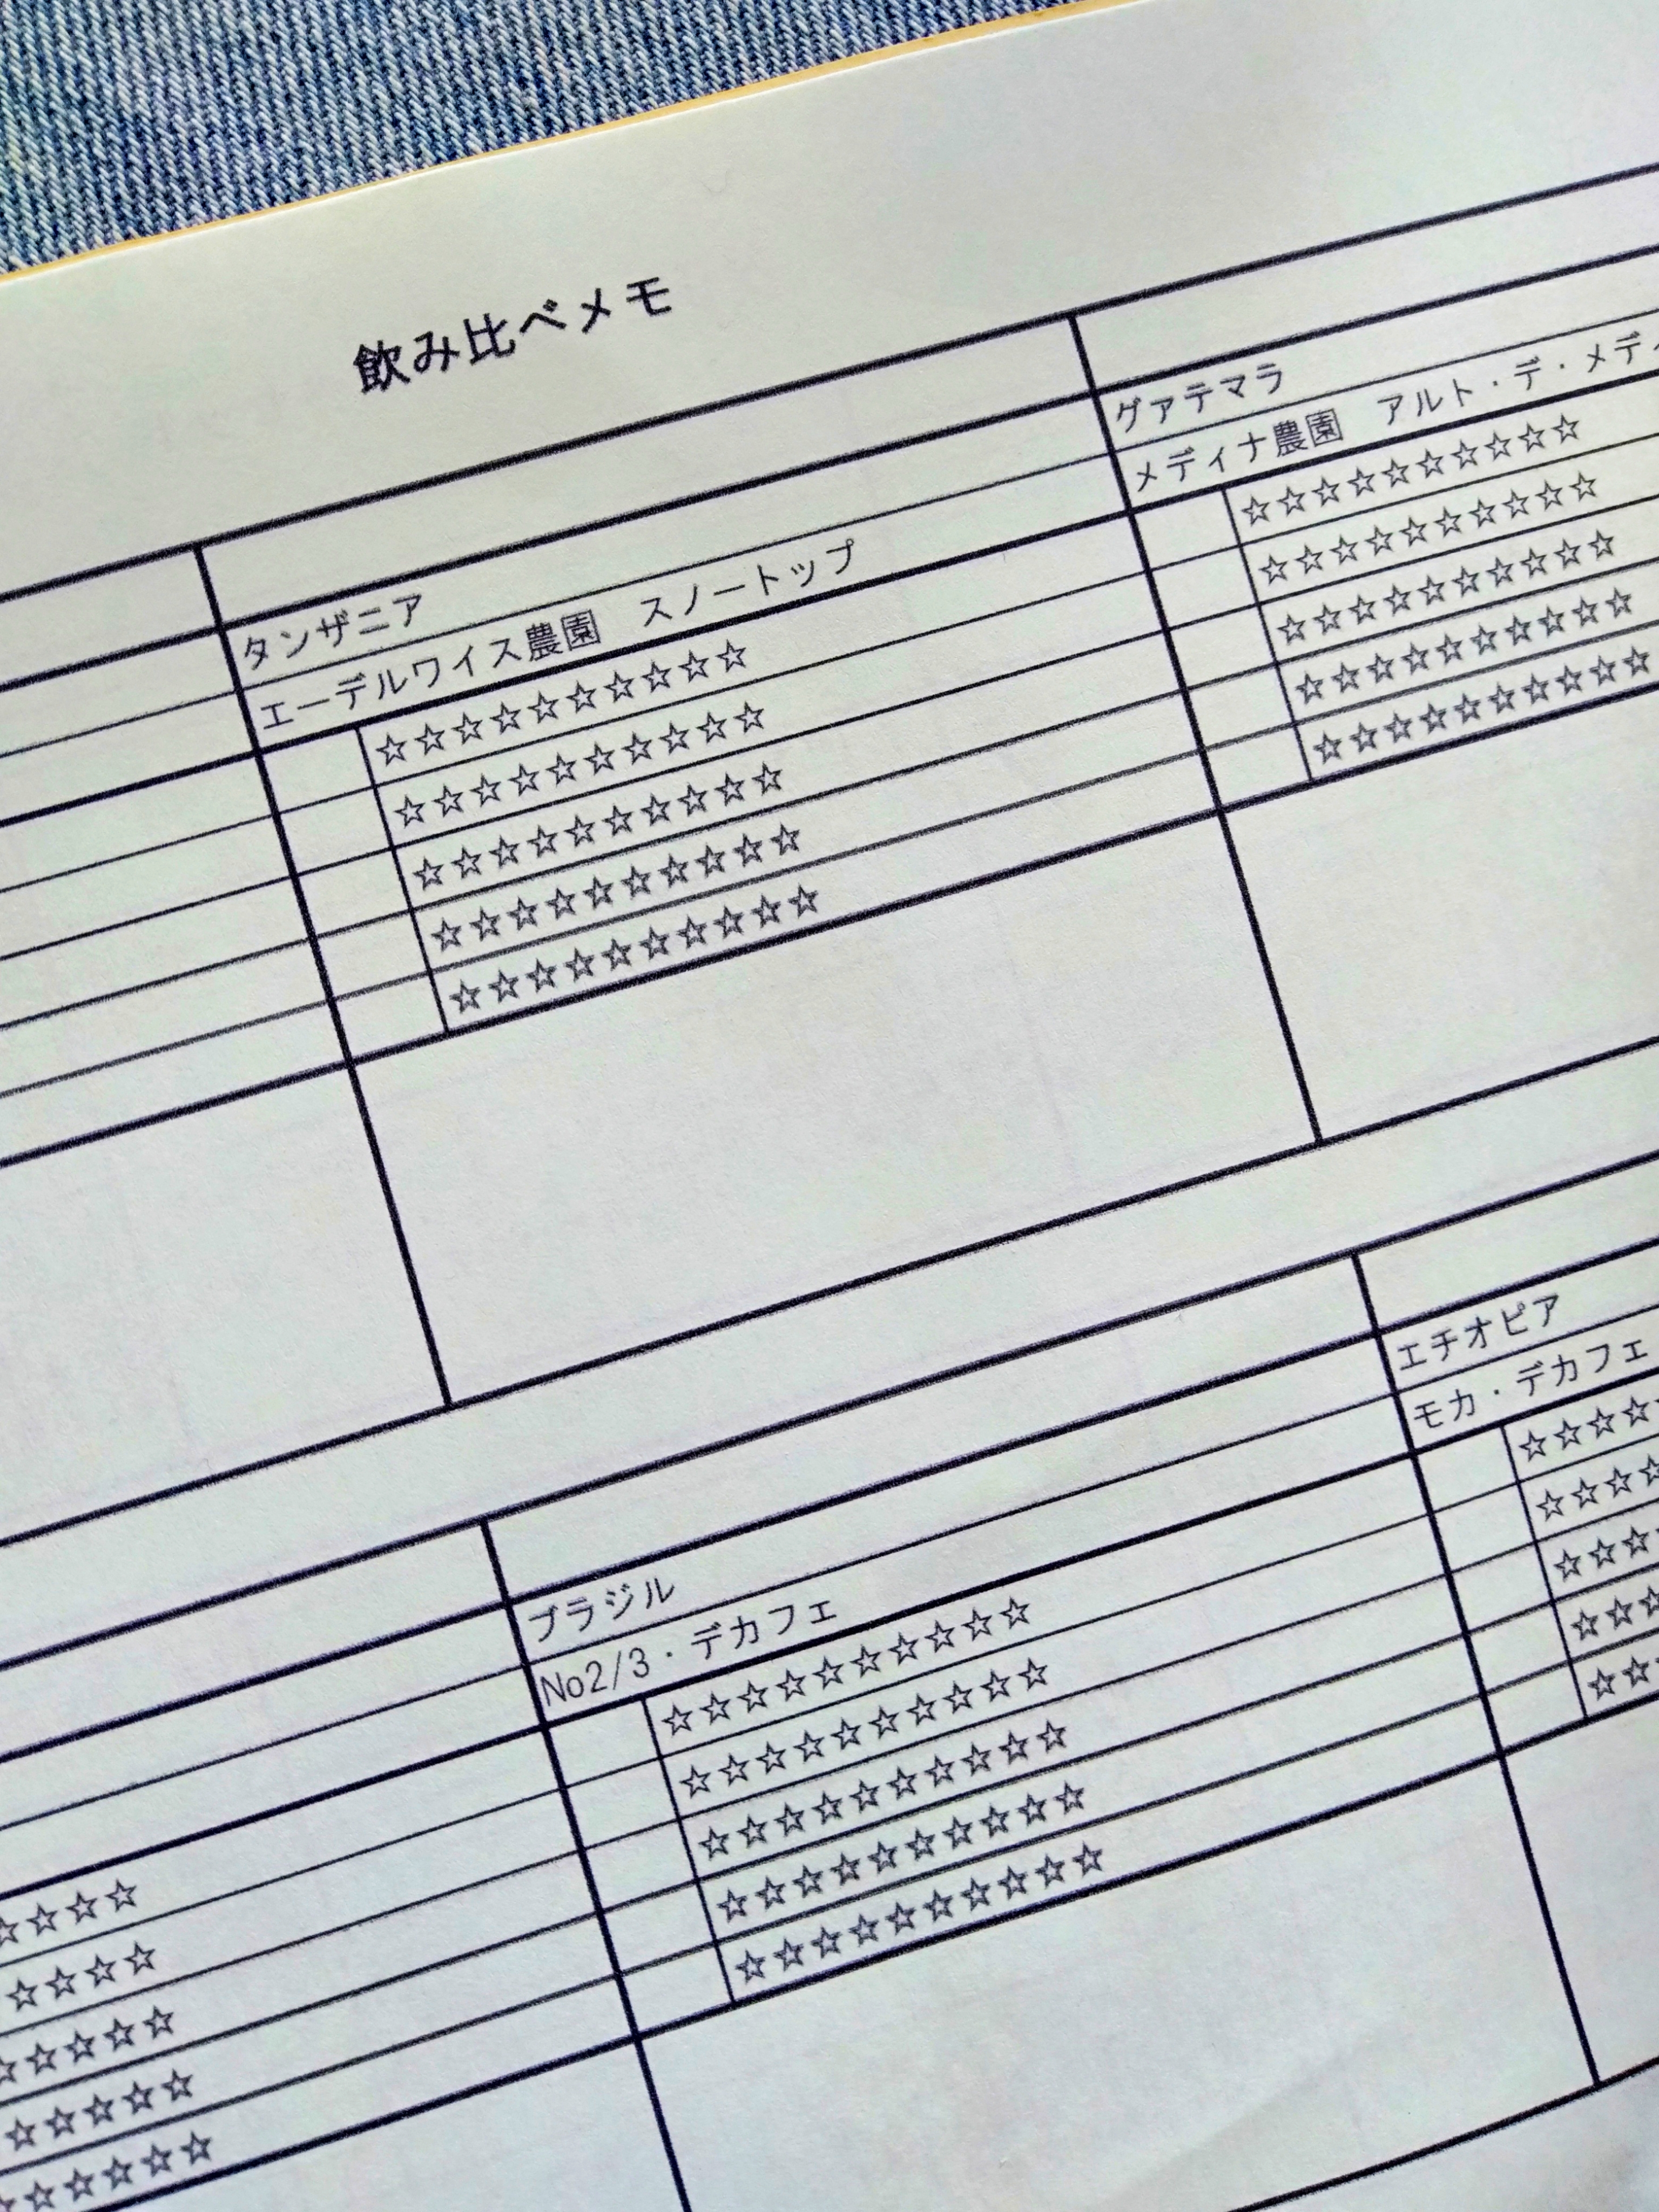 飲み比べメモ
タンザニア
エーデルワイス農園　スノートップ
☆☆☆☆☆☆☆☆☆☆
☆☆☆☆☆☆☆☆☆☆
☆☆☆☆☆☆☆☆☆☆
☆☆☆☆☆☆☆☆☆☆
☆☆☆☆☆☆☆☆☆☆
グァテマラ
メディナ農園　アルト・デ・メディ
☆☆☆☆☆☆☆☆☆☆
☆☆☆☆☆☆☆☆☆☆
☆☆☆☆☆☆☆☆☆☆
☆☆☆☆☆☆☆☆☆☆
☆☆☆☆☆☆☆☆☆☆
☆☆☆☆
☆☆☆☆
☆☆☆☆☆
☆☆☆☆☆
☆☆☆☆☆☆
ブラジル
No2/3・デカフェ
☆☆☆☆☆☆☆☆☆☆
☆☆☆☆☆☆☆☆☆☆
☆☆☆☆☆☆☆☆☆☆
☆☆☆☆☆☆☆☆☆☆
☆☆☆☆☆☆☆☆☆☆
エチオピア
モカ・デカフェ
☆☆☆☆
☆☆☆☆
☆☆☆
☆☆☆
☆☆